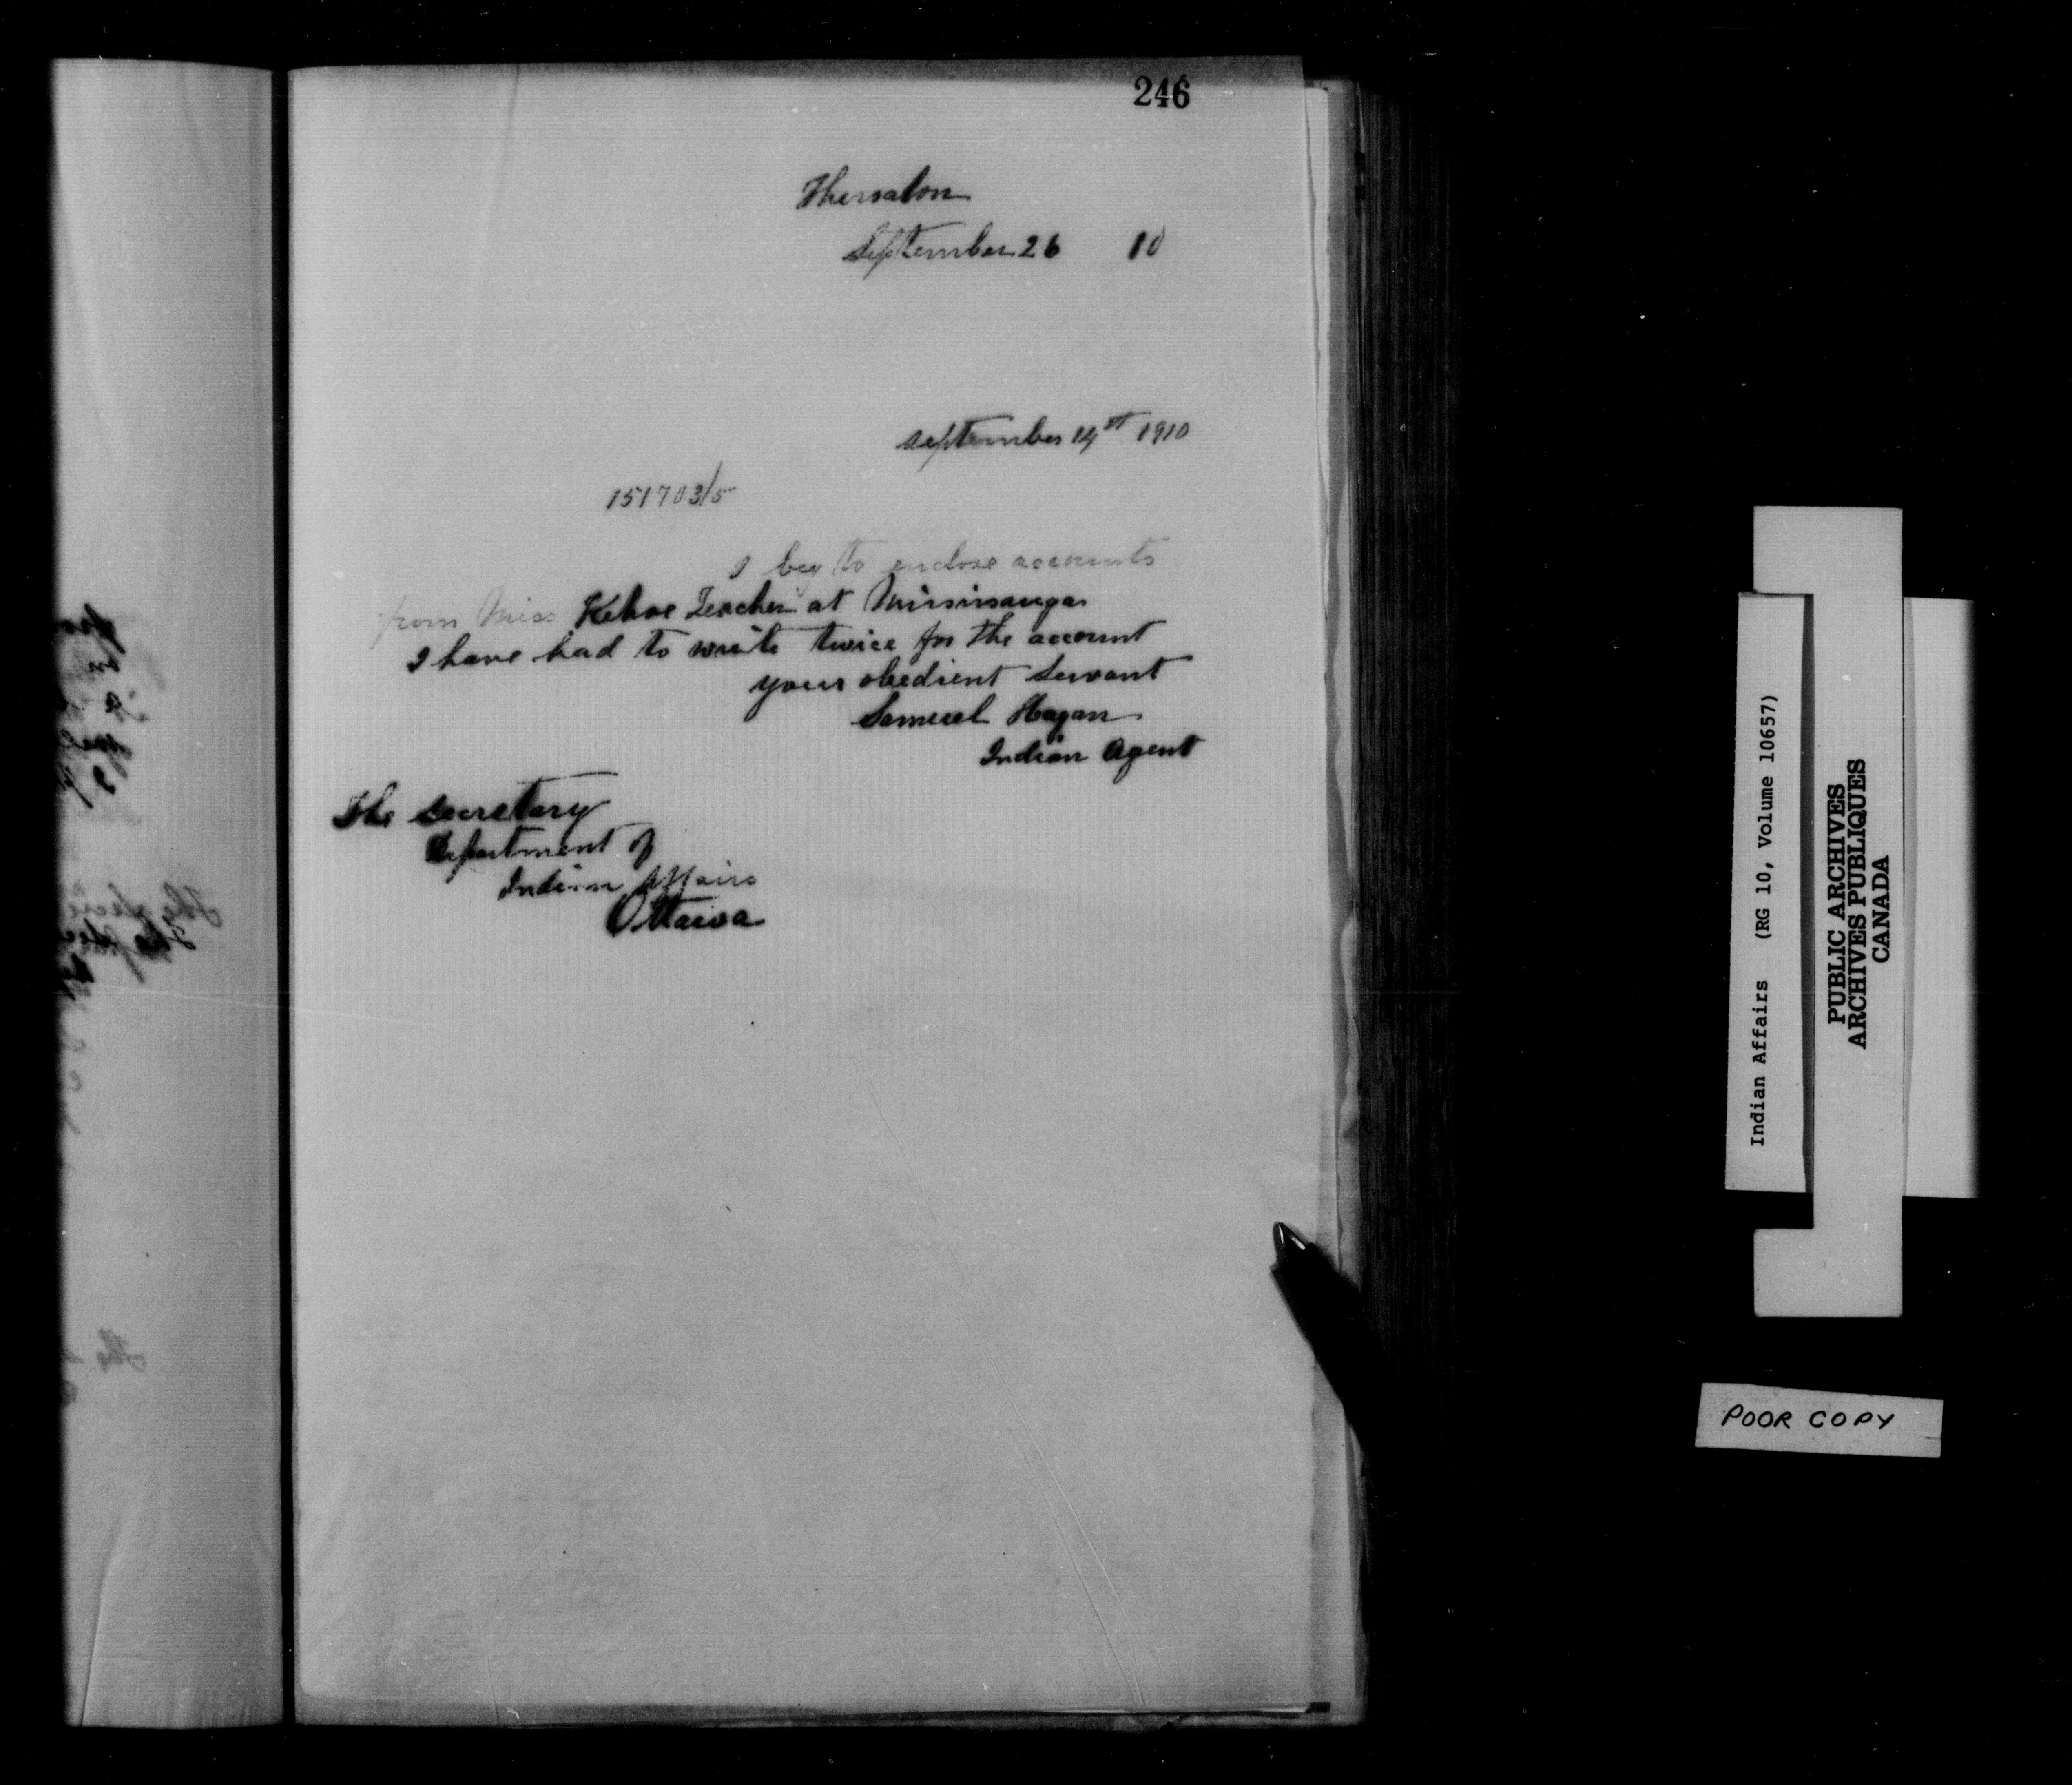 246
Thessalon
September 26 10
September 14st 1910
151703/5
I beg to enclose accounts
from Miss Kehoe Teacher at Mississauga
I have had to write twice for the account
your obedient Servant
Samuel Hagan
Indian Agent
The Secretary
Department of
Indian Affairs
Ottawa
Indian Affairs (RG 10, Volume 10657)
PUBLIC ARCHIVES
ARCHIVES PUBLIQUES
CANADA
POOR COPY